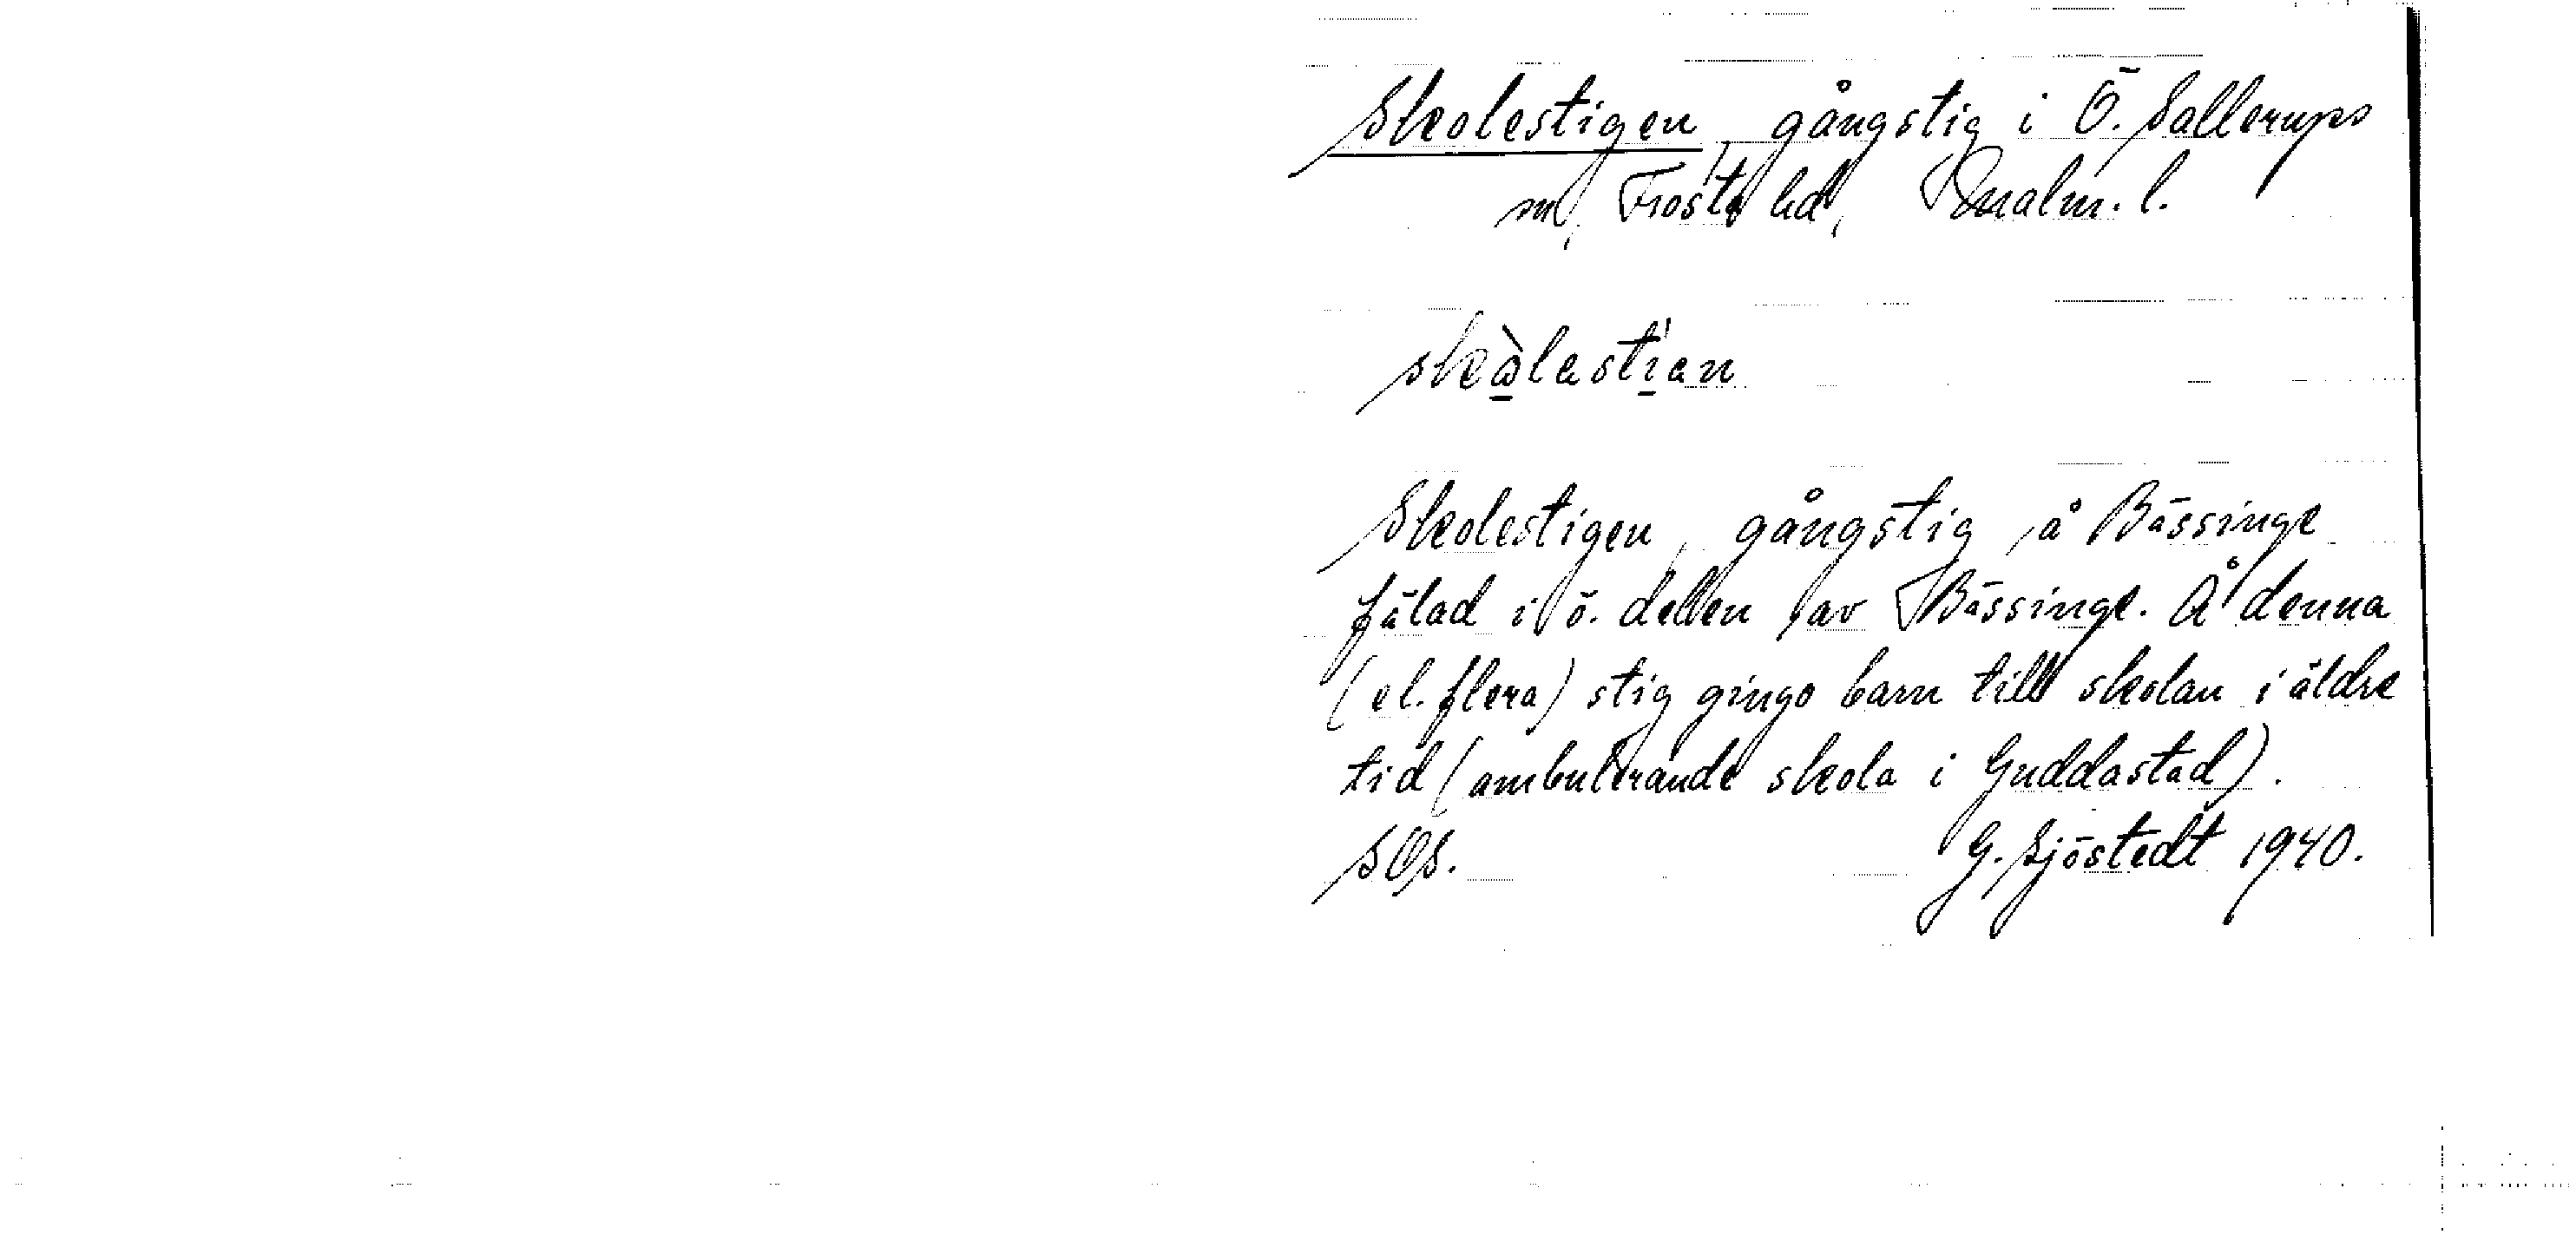 Skolestigen, gångstig i Ö. Sallerups
sn, Frosta hd, Malm. l.
skòlestían
Skolestigen, gångstig å Bässinge
fälad i ö. delen av Bässinge. Å denna
(el. flera) stig gingo barn till skolan i äldre
tid (ambulerande skola i Guddastad).
SOS. G. Sjöstedt 1940.